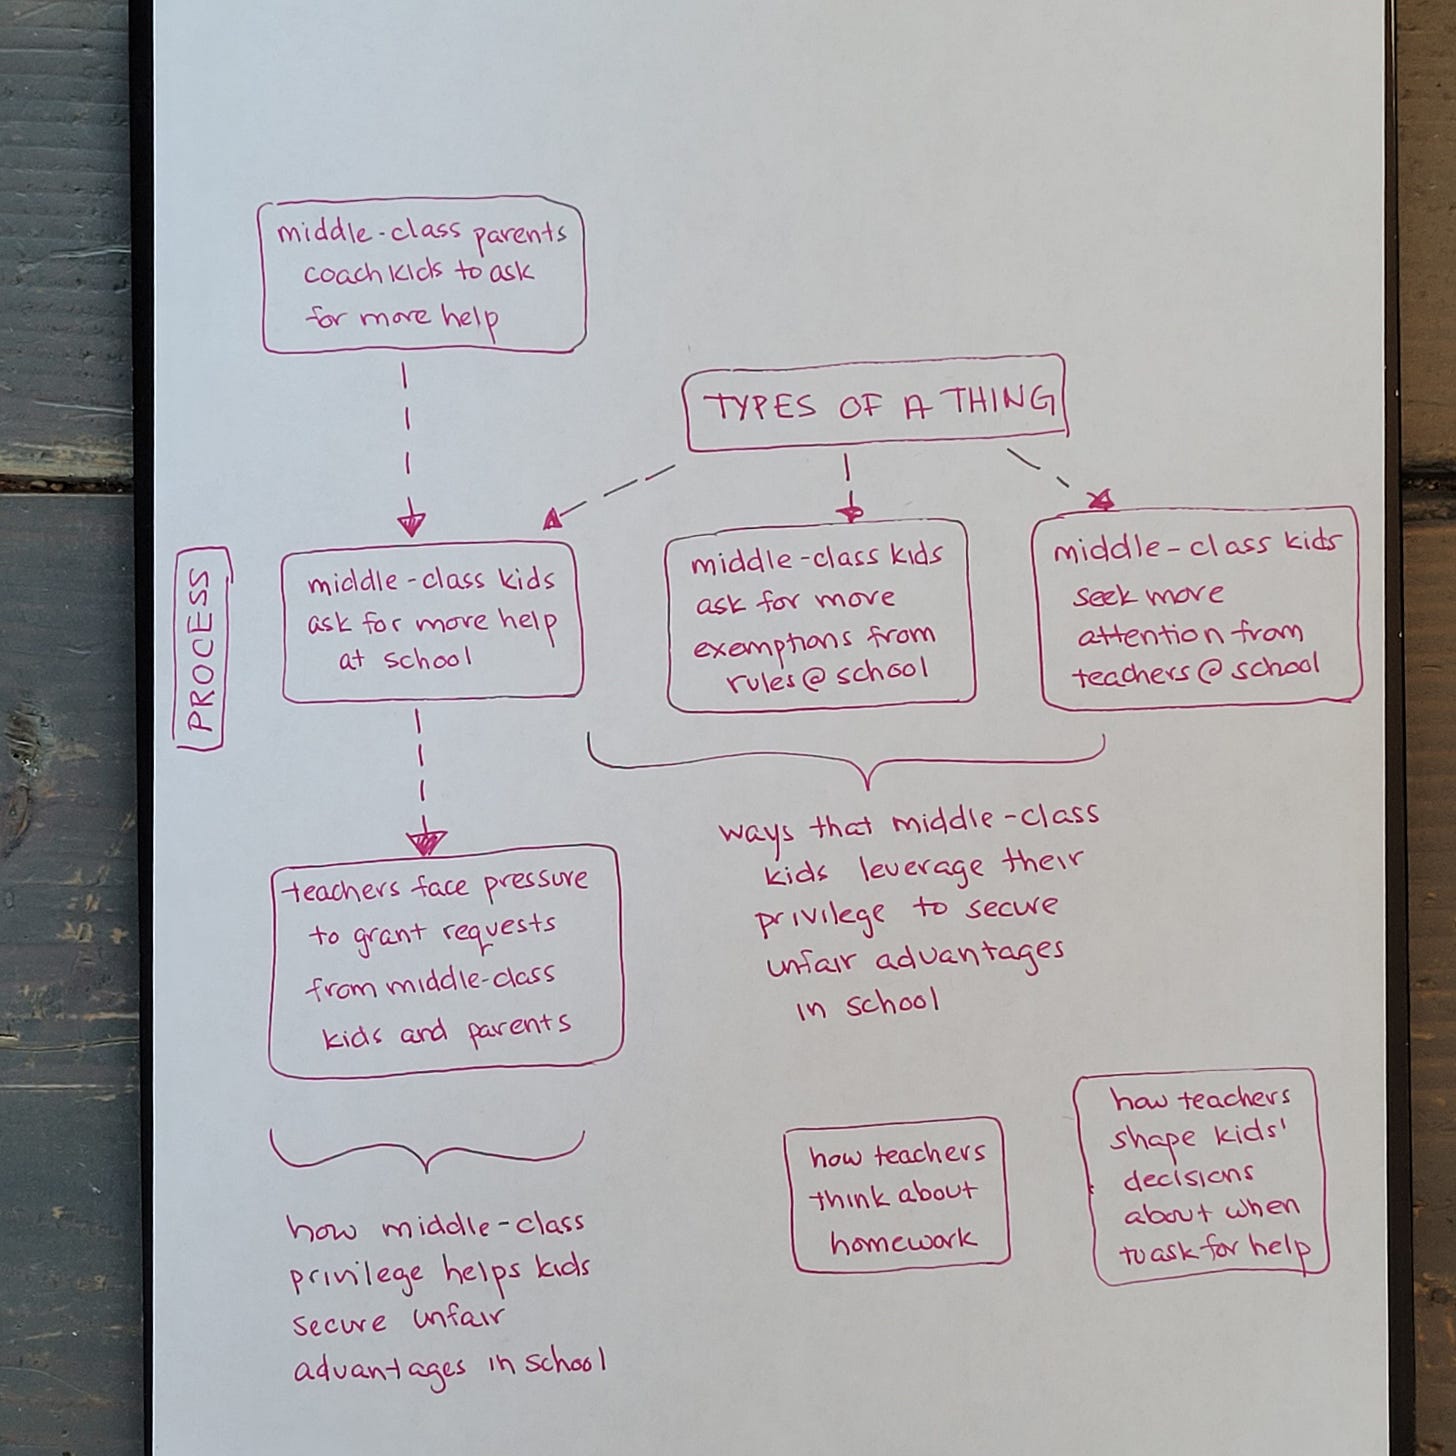 middle-class parents
coach kids to ask
for more help
TYPES OF A THING
PROCESS
middle-class kids
ask for more help
at school
middle-class kids
ask for more
exemptions from
rules@school
middle-class kids
seek more
attention from
teachers@school
ways that middle-class
kids leverage their
privilege to secure
unfair advantages
in school
teachers face pressure
to grant requests
from middle-class
kids and parents
how middle-class
privilege helps kids
secure unfair
advantages in school
how teachers
think about
homework
how teachers
shape kids'
decisions
about when
to ask for help